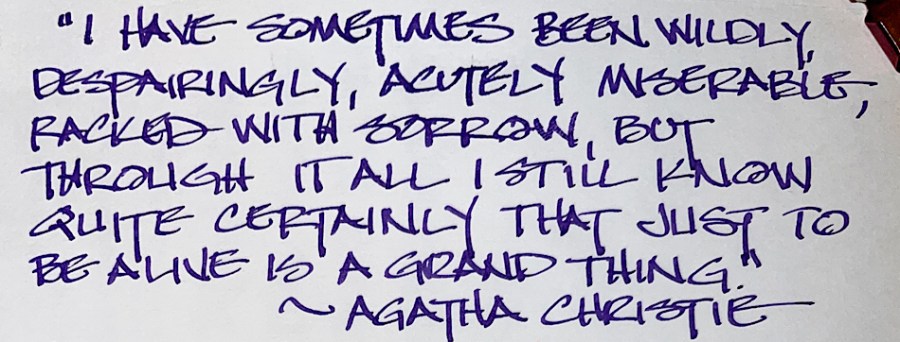 "I HAVE SOMETIMES BEEN WILDLY,
DESPAIRINGLY, ACUTELY MISERABLE,
RACKED WITH SORROW, BUT
THROUGH IT ALL I STILL KNOW
QUITE CERTAINLY THAT JUST TO
BE ALIVE IS A GRAND THING."
~ AGATHA CHRISTIE